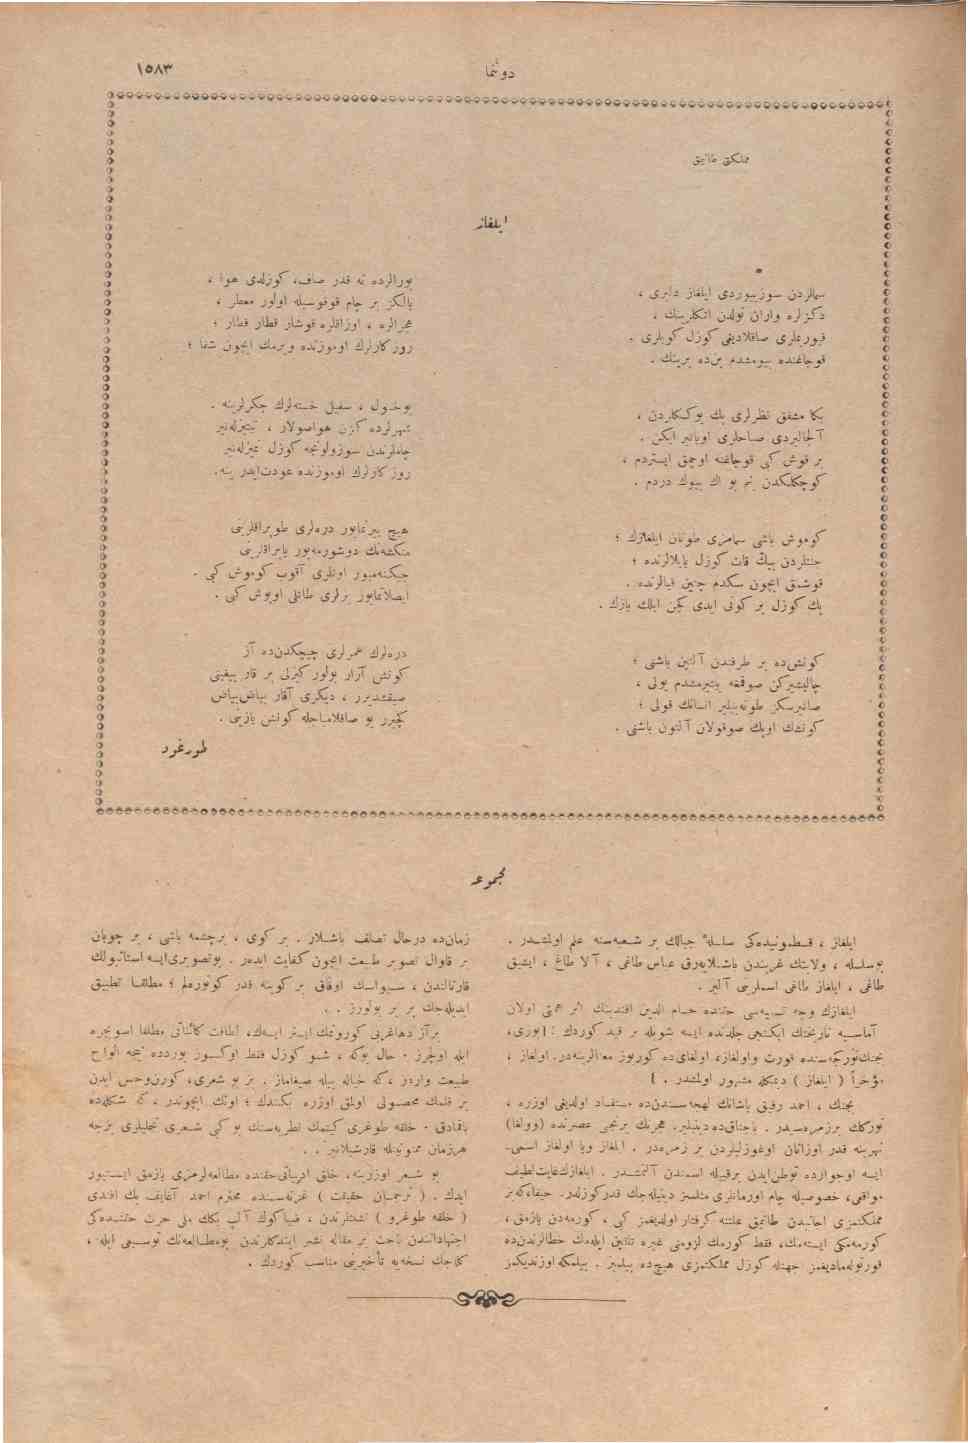 دوننما
١٥٨٣
مملكتى طانيمق
ايلغاز
سمالردن سوزيييوردى ايلغاز داغلرى ،
دكزلره واران يولدن اتكلرينك ،
قيوريملرى صاقلاديغى كوزل كويلرى .
قوجاغنده بيومشدم بن‌ده برينك .
بكا مشفق نظرلرى پك يوكسكلردن ،
آلچاليردى صباحلرى اويانير ايكن .
بر قوش كبى قوجاغنه اوچمق ايستردم ،
كوچكلكدن بنم بو اك بيوك دردم .
كوموش باشى سمامزى طوتان ايلغازك ؛
جنتلردن بيك قات كوزل يايلالرنده ؛
قوشمق ايچون سكدم چتين قيالرنده .
پك كوزل بر كونى ايدى كچن ايلك يازك .
كونش‌ده بر طرفندن آلتين باشنى ؛
چاليشيركن صوقمغه بيتيرمشدم يولى ،
صانيرسكز طوته‌بيلير انسانك قولى ؛
كونشك اوپك صوقولان آلتون باشنى .
بورالرده نه قدر صاف، كوزلدى هوا ،
يالكز بر چام قوقوسيله اولور معطر ،
هجرالره ، اوزاقلره قوشار قطار قطار ؛
روزكارلرك اوموزنده ويرمك ايچون شفا ؛
بوخول ، سفيل خسته‌لرك جكرلرينه .
شهرلرده كزن هواصولار ، تيتيزله‌نير
چاملرندن سوزولونجه كوزل تميزله‌نير
روزكارلرك اوموزنده عودت‌ايدر ينه.
هيچ ييرتمايور دره‌لرى طوپراقلرينى
منكشه‌نك دوشورمه‌يور ياپراقلرينى
چيكنه‌ميور اوتلرى آقوب كوموش كبى .
ايصلاتمايور يرلرى طاتلى اوپوش كبى .
دره‌لرك عمرلرى چيچكدن‌ده آز
كونش آرار بولور كيزلى بر قار ييغينى
صيقشديرر ، ديكرى آقار بياض‌بياض
كچيرر بو صاقلامباجله كونش يازينى .
طورغود
مجموعه
ايلغاز ، قسطمونيده‌كى سلسلهٔ جبالك بر شعبه‌سنه علم اولمشدر .
بو سلسله ، ولايتك غربندن باشلايه‌رق عباس طاغى ، آلا طاغ ، ايشيق
طاغى ، ايلغاز طاغى اسملرينى آلير .
ايلغازك وجه تسميه‌سى حقنده حسام الدين افندينك اثر همتى اولان
آماسيه تاريخنك ايكنجى جلدنده ايسه شويله بر قيد كوردك : [ بورى،
بچنك‌توركچه‌سنده قورت واولغازه، اولغاى‌ده كوريوز معنالرينه‌در. اولغاز ،
مؤخراً ( ايلغاز ) ديمكله مشهور اولمشدر . ]
بچنك ، احمد رفيق پاشانك لهجه‌سندن‌ده مستفاد اولديغى اوزره ،
توركلك برزمره‌سيدر . باجناق‌ده دينيلير. هجرتك برنجى عصرنده (وولغا)
نهرينه قدر اوزانان اوغوزليلردن بر زمره‌در . ايلغاز ويا اولغاز اسمى‌ـ
ايسه اوجوارده توطن‌ايدن برقبيله اسمندن آلنمشدر . ايلغازك‌غايت‌لطيف
مواقعى، خصوصيله چام اورمانلرى مثلسز دينيله‌جك قدركوزلدر. حيفاكه‌بز
مملكتمزى اجانبدن طانيمق علتنه كرفتار اولديغمز كبى ، كورمه‌دن يازمق ،
كورمه‌مكى ايسته‌مك، فقط كورمك لزومنى غيره تلقين ايله‌مك خطالرندن‌ده
قورتوله‌ماديغمز جهتله كوزل مملكتمزى هيچ‌ده بيلميز . بيلمكه اوزنديكمز
زمان‌ده درحال تصلف باشلار . بر كوى ، برچشمه باشى ، بر چوبان
بر قاوال تصوير طبيعت ايچون كفايت ايدر . بوتصويرى‌ايسه استانبولك
قارتالندن ، سيواسك اوفاق بر كوينه قدر كوتوره‌لم ؛ مطلقا تطبيق
ايديله‌جك بر ير بولورز . .
برآز دهاغريبى كورونمك ايستر ايسه‌ك، لطافت كائناتى مطلقا اسويچره
ايله اولچرز . حال بوكه ، شو كوزل فقط اوكسوز يوردده نيجه الواح
طبيعت واردر ،كه خياله بيله صيغماز . بز بو شعرى، كورن‌وحس ايدن
بر قلمك محصولى اولمق اوزره بكندك ؛ اونك ايچوندر ، كه شكلنه‌ده
باقمادق . خلقه طوغرى كيتمك نظريه‌سنك بو كبى شعرى تجليلرى بزجه
هرزمان ممنونيتله قارشيلانير . .
بو شعر اوزرينه، خلق ادبياتى‌حقنده مطالعه‌لرمزى يازمق ايستيور
ايدك . ( ترجمان حقيقت ) غزته‌سنده محترم احمد آغايف بك افندى
( خلقه طوغرو ) نشئتلرندن ، ضياكوك آلپ بكك ملى حرث حقنده‌كى
اجتهاداتندن باحث بر مقاله نشر ايتدكلرندن بومطالعه‌نك توسيعى ايله ،
كله‌جك نسخه‌يه تأخيرينى مناسب كوردك .